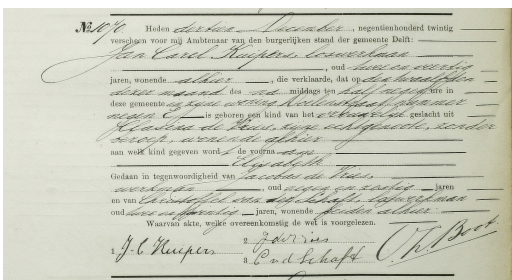 No 1070. Heden dertien December, negentienhonderd twintig
verscheen voor mij Ambtenaar van den burgerlijken stand der gemeente Delft:
Jan Carel Kuipers, loswerkman
, oud twee en veertig
jaren, wonende alhier, die verklaarde, dat op den twaalfden
dezer maand des na middags ten half negen ure in
deze gemeente in zijne woning nummer
negen E is geboren een kind van het vrouwelijk geslacht uit
de Vries, zijne echtgenoote, zonder
beroep, wonende alhier
aan welk kind gegeven word de voorna am
Elisabeth
Gedaan in tegenwoordigheid van Jacobus de Vries,
werkman, oud negen en zestig jaren
en van Christoffel van der Schaft, loswerkman
oud jaren, wonende beiden alhier.
Waarvan akte, welke overeenkomstig de wet is voorgelezen.
1. J. C. Kuipers 2. J de Vries
3. C v d Schaft